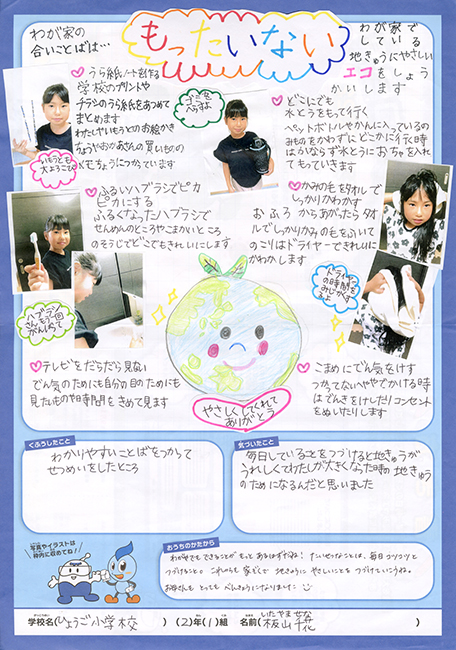 わが家の
合いことばは…
もったいない
わが家で
している
地きゅうにやさしい
エコをしょう
かいします
うら紙ノートを作る
学校のプリントや
チラシのうら紙をあつめて
まとめます
わたしやいもうとのお絵かき
ちょうやおかあさんの買いもの
メモちょうにつかっています
いもうとも
大よろこび
ゴミを
へらすよ
どこにでも
水とうをもって行く
ペットボトルやかんに入っているの
みものをかわずにどこかに行く時
はかならず水とうにおちゃを入れ
てもっていきます
ふるいハブラシでピカ
ピカにする
ふるくなったハブラシで
せんめんのところやこまかいところ
のそうじでどこでもきれいにします
ハブラシ
さんもう一回
がんばって
かみの毛をタオルで
しっかりかわかす
おふろからあがったらタオ
ルでしっかりかみの毛をふいて
のこりはドライヤーできれいに
かわかします
ドライヤー
の時間を
みじかくす
るよ
テレビをだらだら見ない
でん気のためにも自分の目のためにも
見たものや時間をきめて見ます
やさしくしてくれて
ありがとう
こまめにでん気をけす
つかってないへややでかける時
はでんきをけしたりコンセント
をぬいたりします
くふうしたこと
わかりやすいことばをつかって
せつめいをしたところ
気づいたこと
毎日していることをつづけると地きゅうが
うれしくてわたしが大きくなった時の地きゅう
のためになるんだと思いました
写真やイラストは
枠内に収めてね！
おうちのかたから
わがやでもできることがもっとあるはずだね！たいせつなことは、毎日コツコツと
つづけること。これからも家ぞくで地きゅうにやさしいことをつづけていこうね。
お母さんもとってもべんきょうになりました
学校名(ひょうご小学校) (2)年(1)組 名前(いたやま せな 板山 千花)